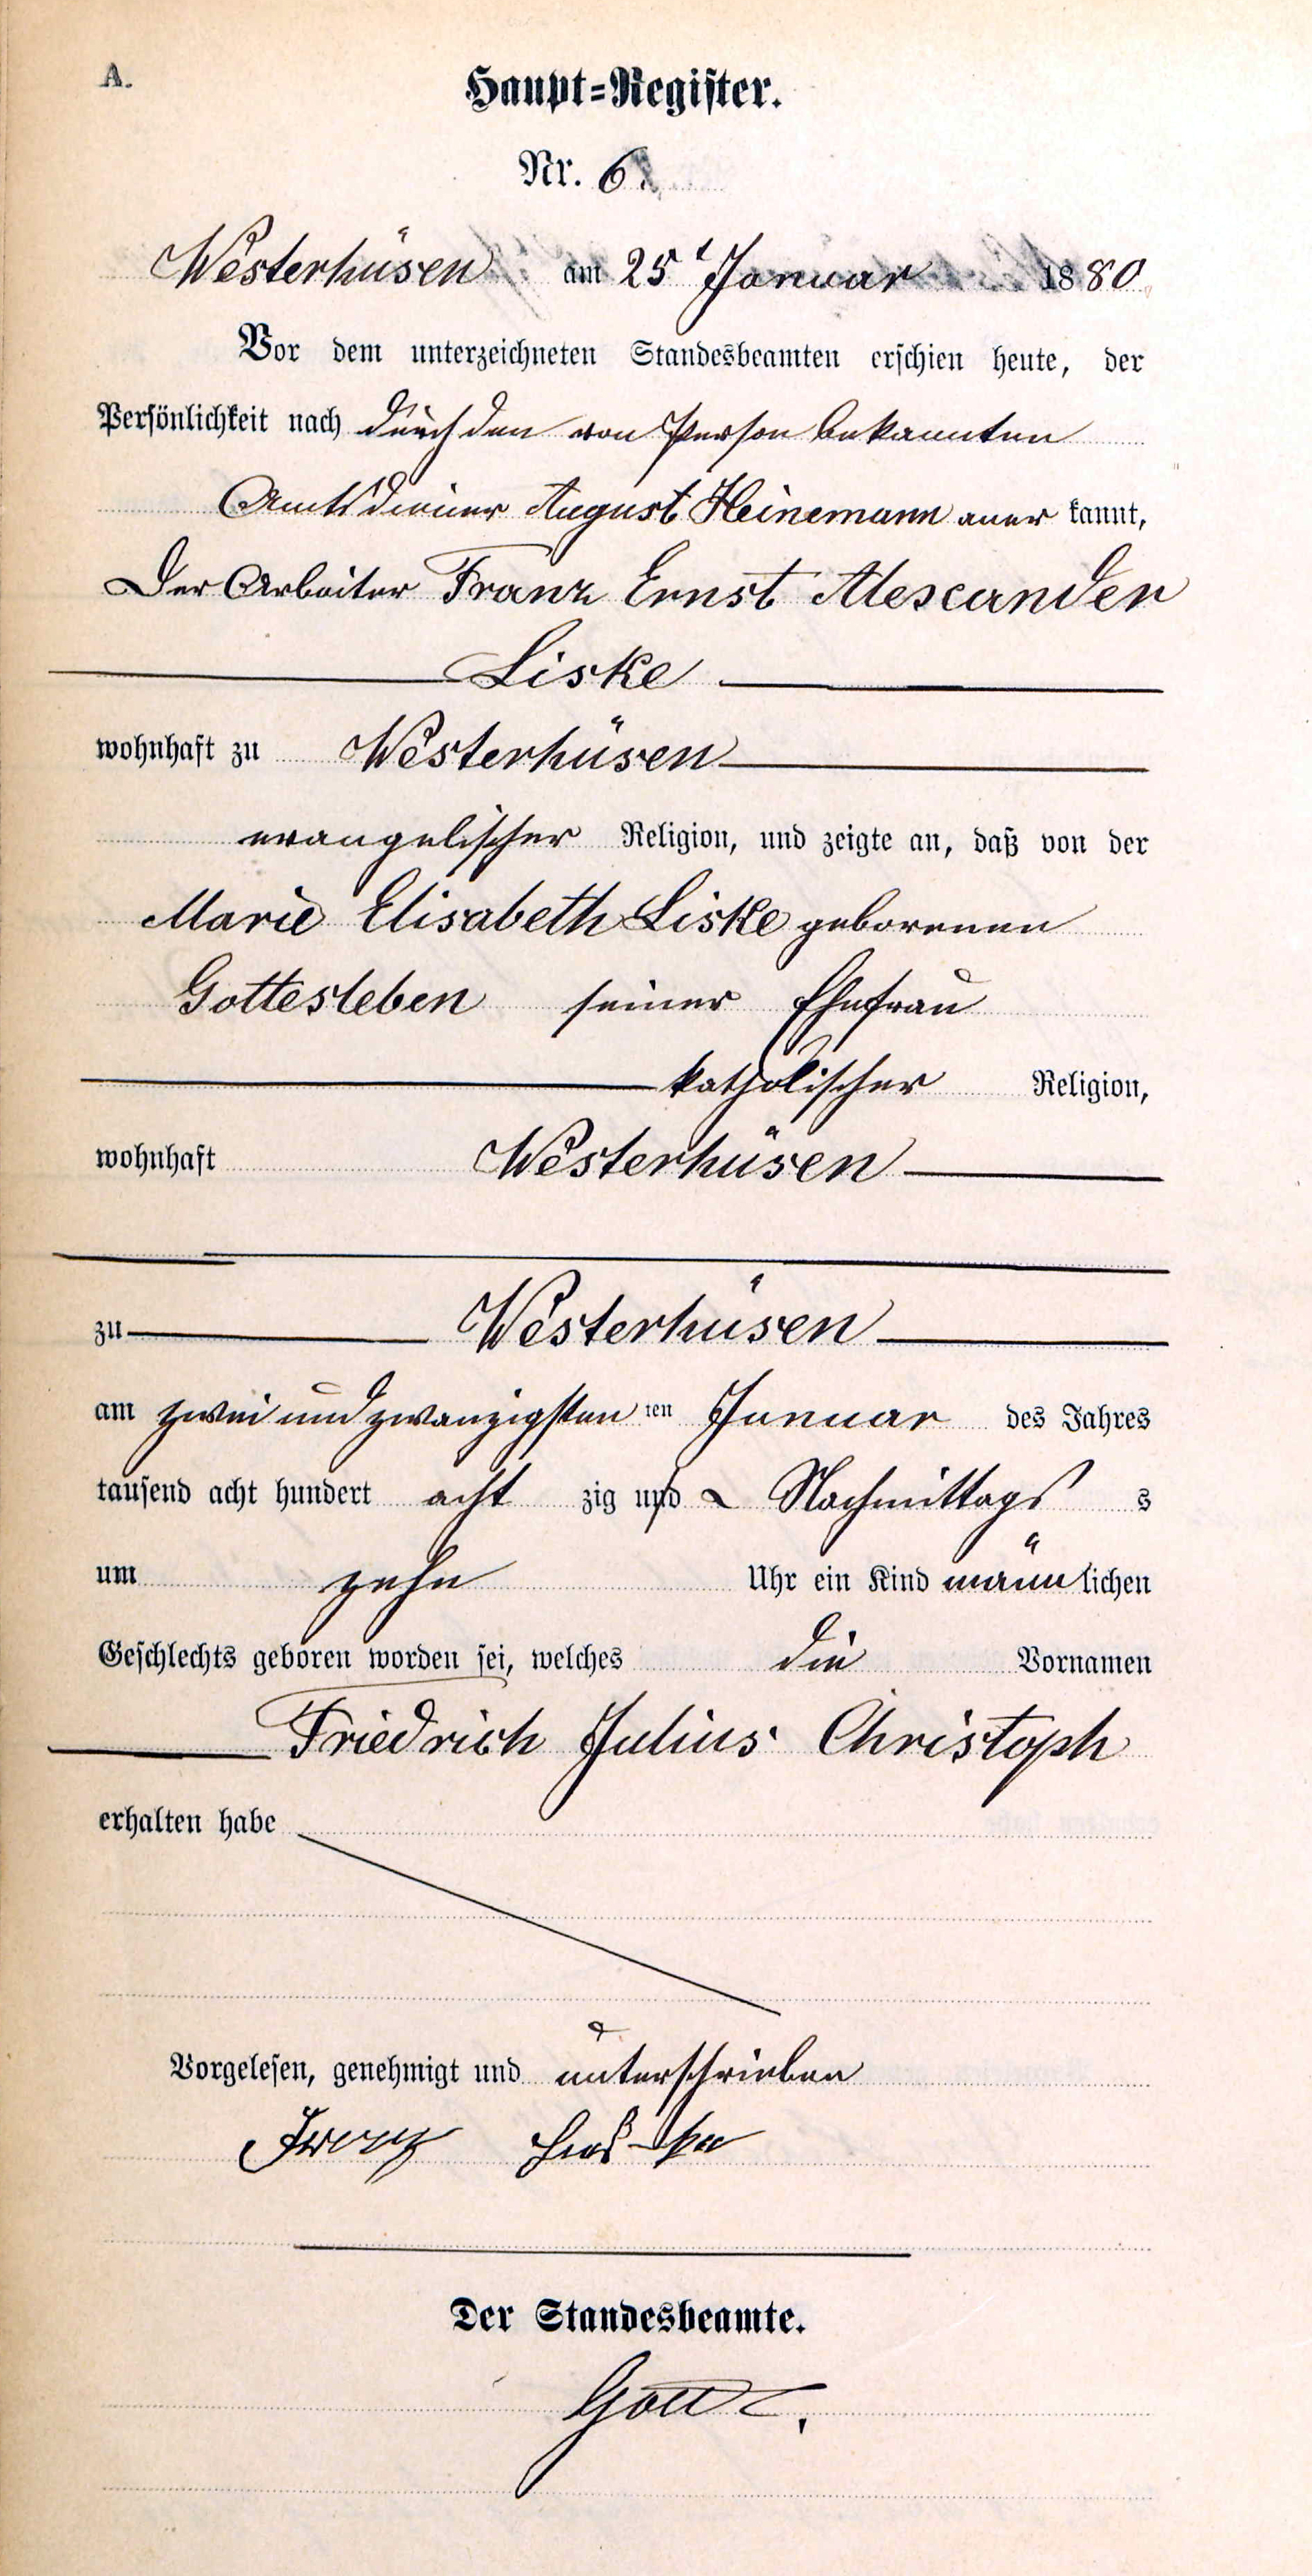 A.
Haupt=Register.
Nr. 6.
Westerhüsen am 25t Januar 1880
Vor dem unterzeichneten Standesbeamten erschien heute, der
Persönlichkeit nach durch den von Person bekannten
Amtsdiener August Heinemann aner kannt,
Der Arbeiter Franz Ernst Alexander
Liske
wohnhaft zu Westerhüsen
evangelischer Religion, und zeigte an, daß von der
Marie Elisabeth Liske geborenen
Gottesleben seiner Ehefrau
katholischer Religion,
wohnhaft Westerhüsen
zu Westerhüsen
am zwei und zwanzigsten ten Januar des Jahres
tausend acht hundert acht zig und Nachmittags s
um zehn Uhr ein Kind männlichen
Geschlechts geboren worden sei, welches die Vornamen
Friedrich Julius Christoph
erhalten habe
Vorgelesen, genehmigt und unterschrieben
Der Standesbeamte.